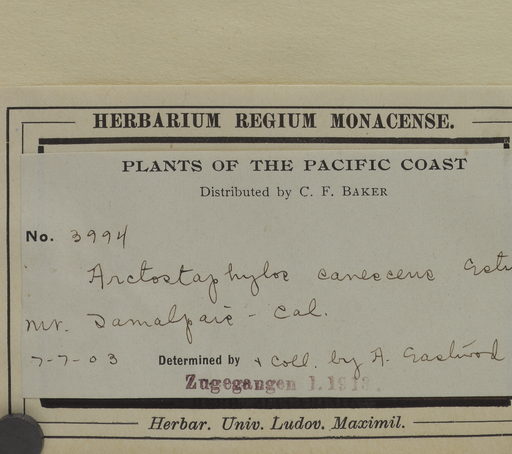 HERBARIUM REGIUM MONACENSE.
PLANTS OF THE PACIFIC COAST
Distributed by C. F. BAKER
No. 3994
Arctostaphylos canescens
Mt. Tamalpais - Cal.
7-7-03 Determined by & Coll. by A. Eastwood
Zugegangen 1.1913.
Herbar. Univ. Ludov. Maximil.